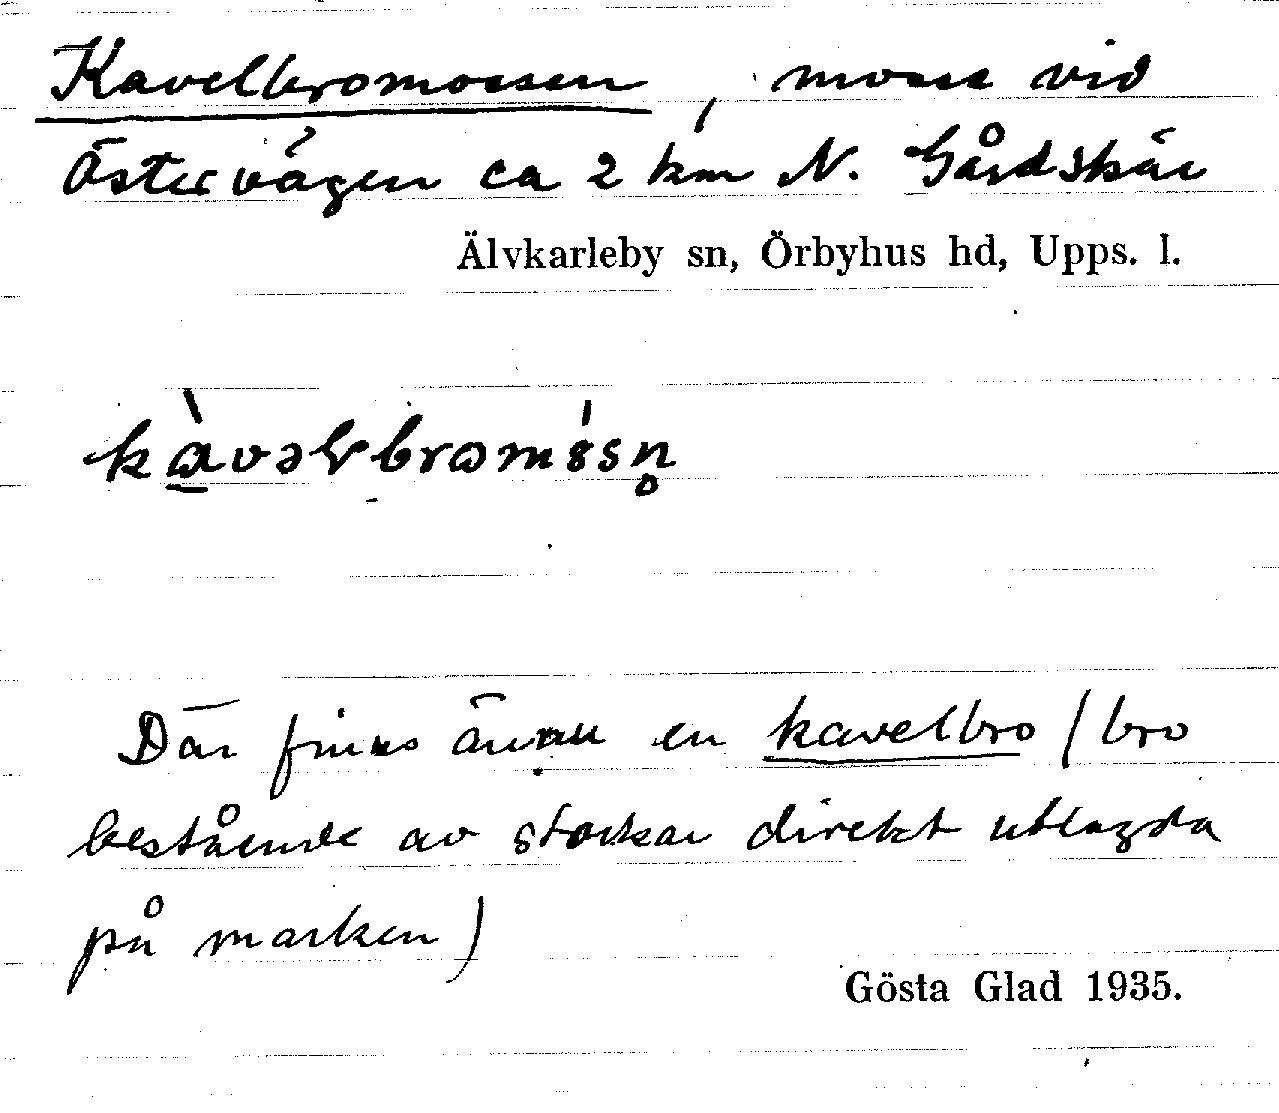 Kavelbromossen, mosse vid
Östervägen ca 2 km N. Gårdskär
Älvkarleby sn, Örbyhus hd, Upps. l.
kàvəlbromósn̥
Där finns ännu en kavelbro (bro
bestående av stockar direkt utlagda
på marken)
Gösta Glad 1935.